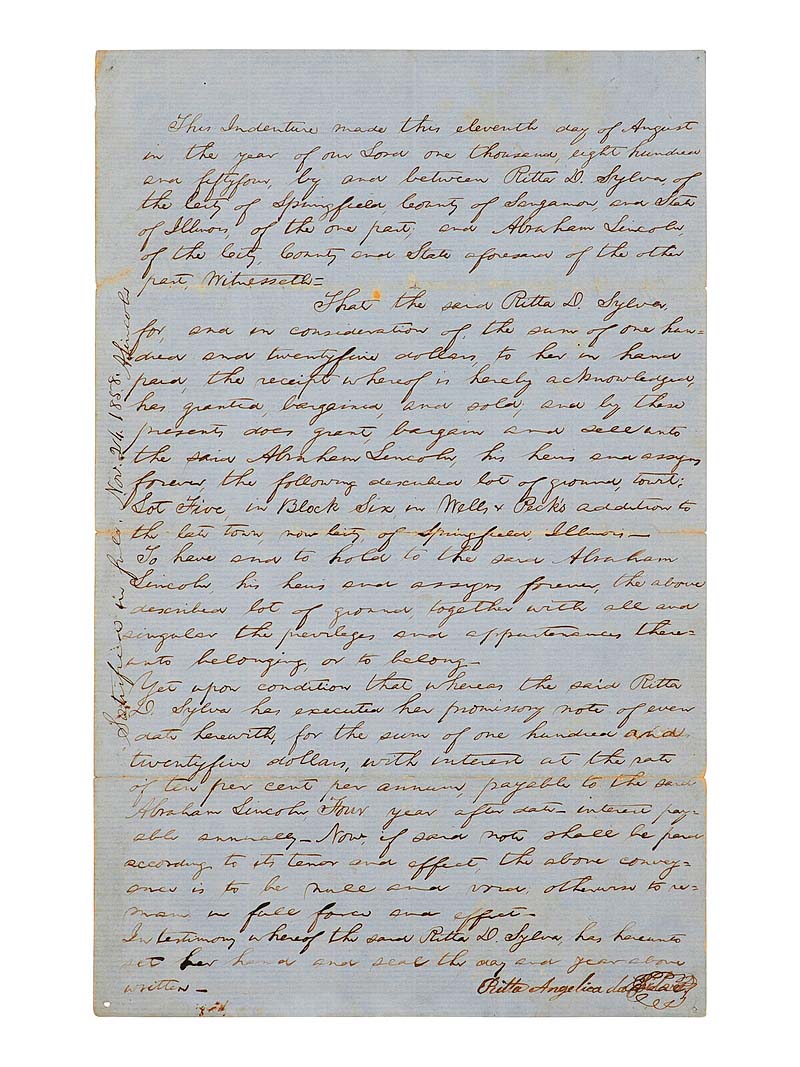 This Indenture made this eleventh day of August
in the year of our Lord one thousand, eight hundred
and fiftyfour, by and between Ritta D. Sylva, of
the City of Springfield, County of Sangamon, and State
of Illinois, of the one part; and Abraham Lincoln,
of the City, County and State aforesaid of the other
part, Witnesseth=
That the said Ritta D. Sylva,
for, and in consideration of, the sum of one hun=
dred and twentyfive dollars, to her in hand
paid, the receipt whereof is hereby acknowledged,
has granted, bargained, and sold, and by these
presents does grant, bargain and sell unto
the said Abraham Lincoln, his heirs and assigns
forever, the following described lot of ground, towit:
Lot Five, in Block Six in Wells & Peck's addition to
the late town, now City, of Springfield, Illinois—
To have and to hold to the said Abraham
Lincoln, his heirs and assigns forever, the above
described lot of ground, together with all and
singular the privileges and appurtenances there=
unto belonging, or to belong—
Yet upon condition that whereas the said Ritta
D. Sylva has executed her promissory note of even
date herewith, for the sum of one hundred and
twentyfive dollars, with interest at the rate
of ten per cent per annum, payable to the said
Abraham Lincoln Four year after date— interest pay-
able annually— Now, if said note shall be paid
according to its tenor and effect, the above convey=
ance is to be null and void, otherwise to re=
main in full force and effect—
In testimony whereof the said Ritta D. Sylva, has hereunto
set her hand and seal the day and year above
written—
Ritta Angelica da
Satisfied in full. Nov. 24. 1858. A. Lincoln